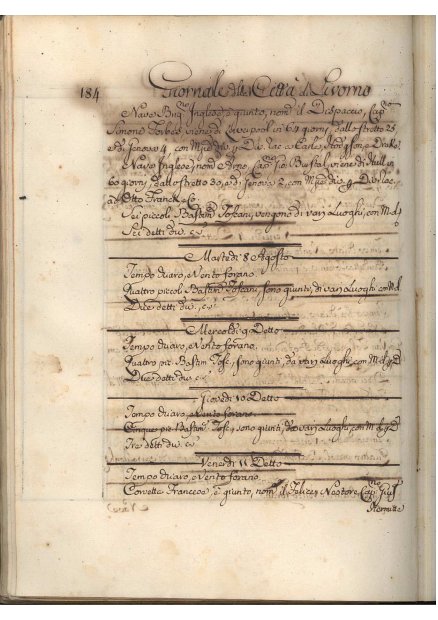 184 Giornale della Città di Livorno
Nave Inglese, è giunto, nom. il Dispaccio, Cap.no
Simone Forbes viene di Liverpool in 64 giorni, dallo stretto 25
e da Genova 4, con Mdie
Nave Inglese, nom. viene di Hull in
60 giorni, dallo stretto 30, e di Genova 2, con
ad Otto Franck e Co.
Sei piccoli Bastim. Toscani, vengono di varj Luoghi, con Md.
Sei detti div. ec.
Martedì 8 Agosto
Tempo chiaro, e Vento forano.
Quattro piccoli Bastim. Toscani, sono giunti, di varj Luoghi con Md.
Due detti, div., ec.
Mercoldì 9 Detto
Tempo chiaro, e Vento forano.
Quattro pic. Bastim. Tosc., sono giunti, da varj Luoghi, con Md. p. D.
Due detti div., ec.
Giovedì 10 Detto
Tempo chiaro, e Vento forano.
Cinque pic. Bastim. Tosc., sono giunti, da varj Luoghi, con Md. p. D.
Tre detti div. ec.
Venerdì 11 Detto
Tempo chiaro, e Vento forano.
Corvetta Francese, è giunto, nom. il Felice Nestore, Cap.no Gius.